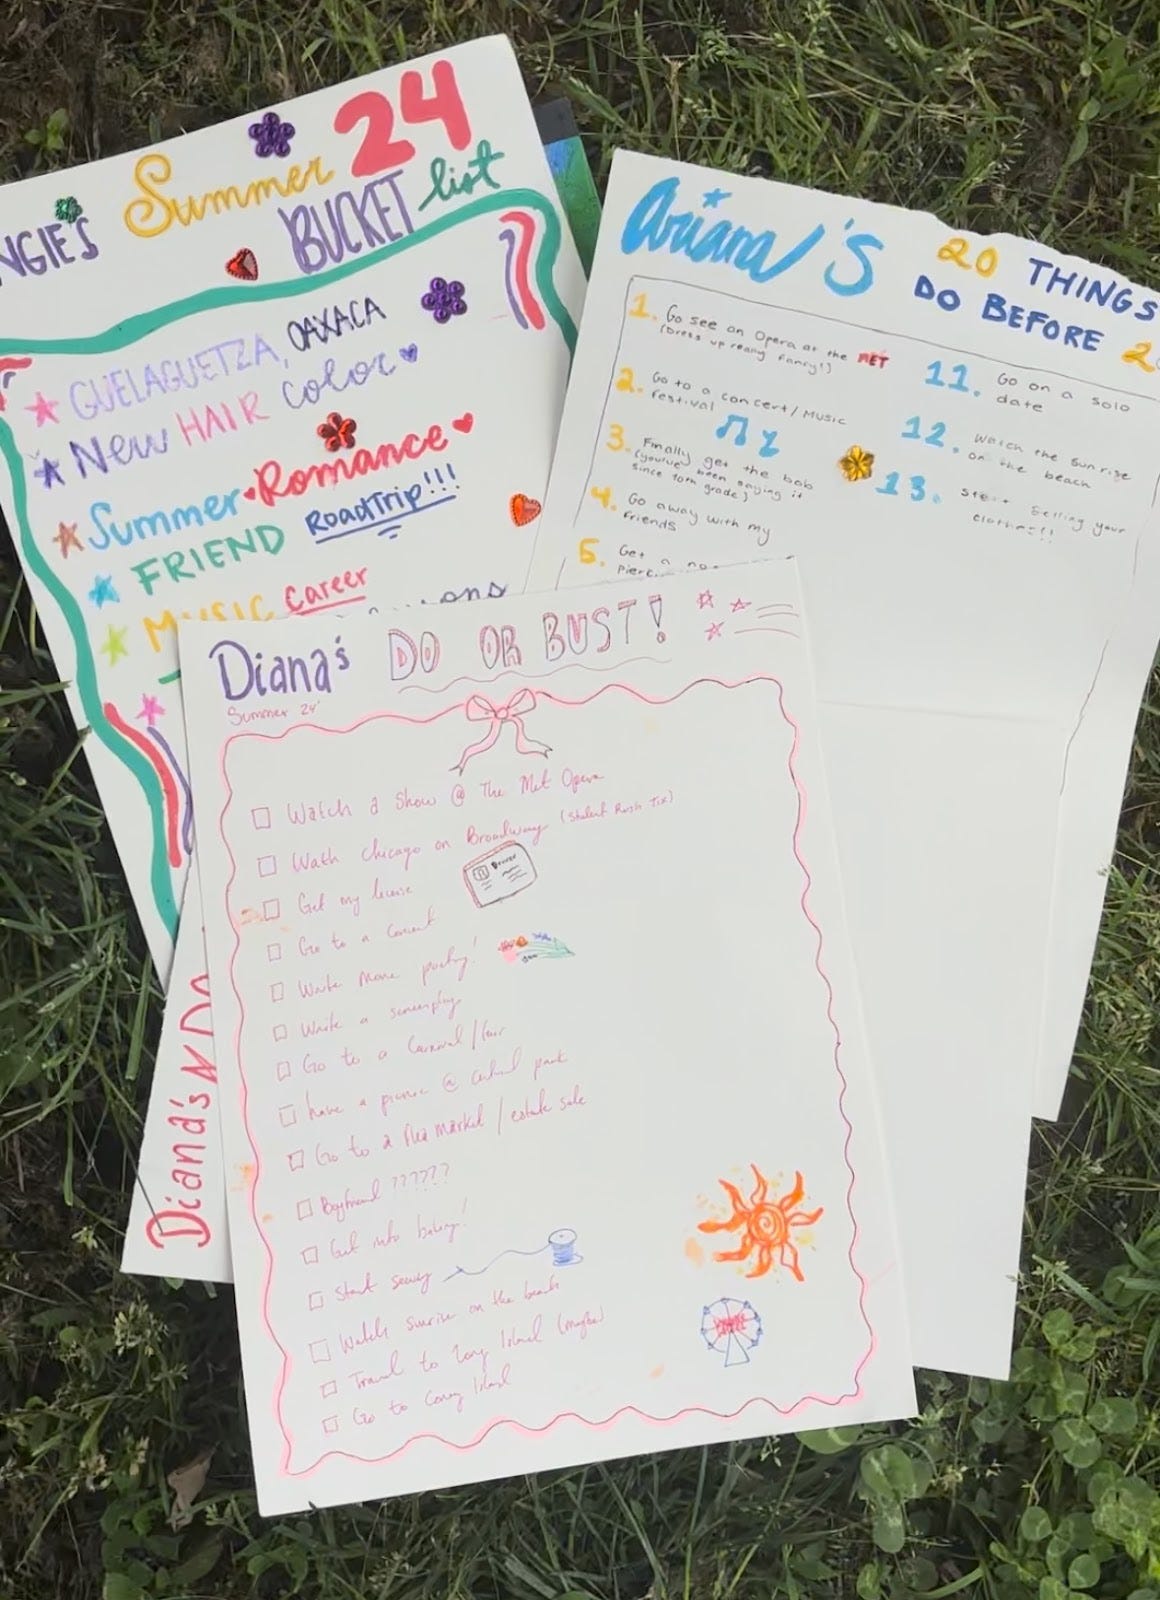 NGIE'S Summer 24
BUCKET list
GUELAGUETZA, OAXACA
New HAIR Color
Summer Romance
FRIEND RoadTrip!!!
MUSIC Career
Ariana's 20 THINGS
DO BEFORE 2
1. Go see an Opera at the MET
(Dress up really fancy!)
2. Go to a concert/Music
festival
3. Finally get the bob
(you've been saying it
since 10th grade)
4. Go away with my
friends
5. Get a
11. Go on a solo
date
12. Watch the sunrise
on the beach
13. Start selling your
clothes!!!
Diana's DO OR BUST!
Summer 24'
Watch a Show @ The Met Opera
Wath Chicago on Broadway (Student Rush Tix)
Get my license
Go to a Concert
Write more poetry!
Write a screenplay
Go to a Carnival/fair
have a picnic @ Central park
Go to a flea market / estate sale
Boyfriend ??????
Get into baking!
Start sewing
Watch sunrise on the beach
Travel to Long Island (maybe)
Go to Coney Island
Diana's